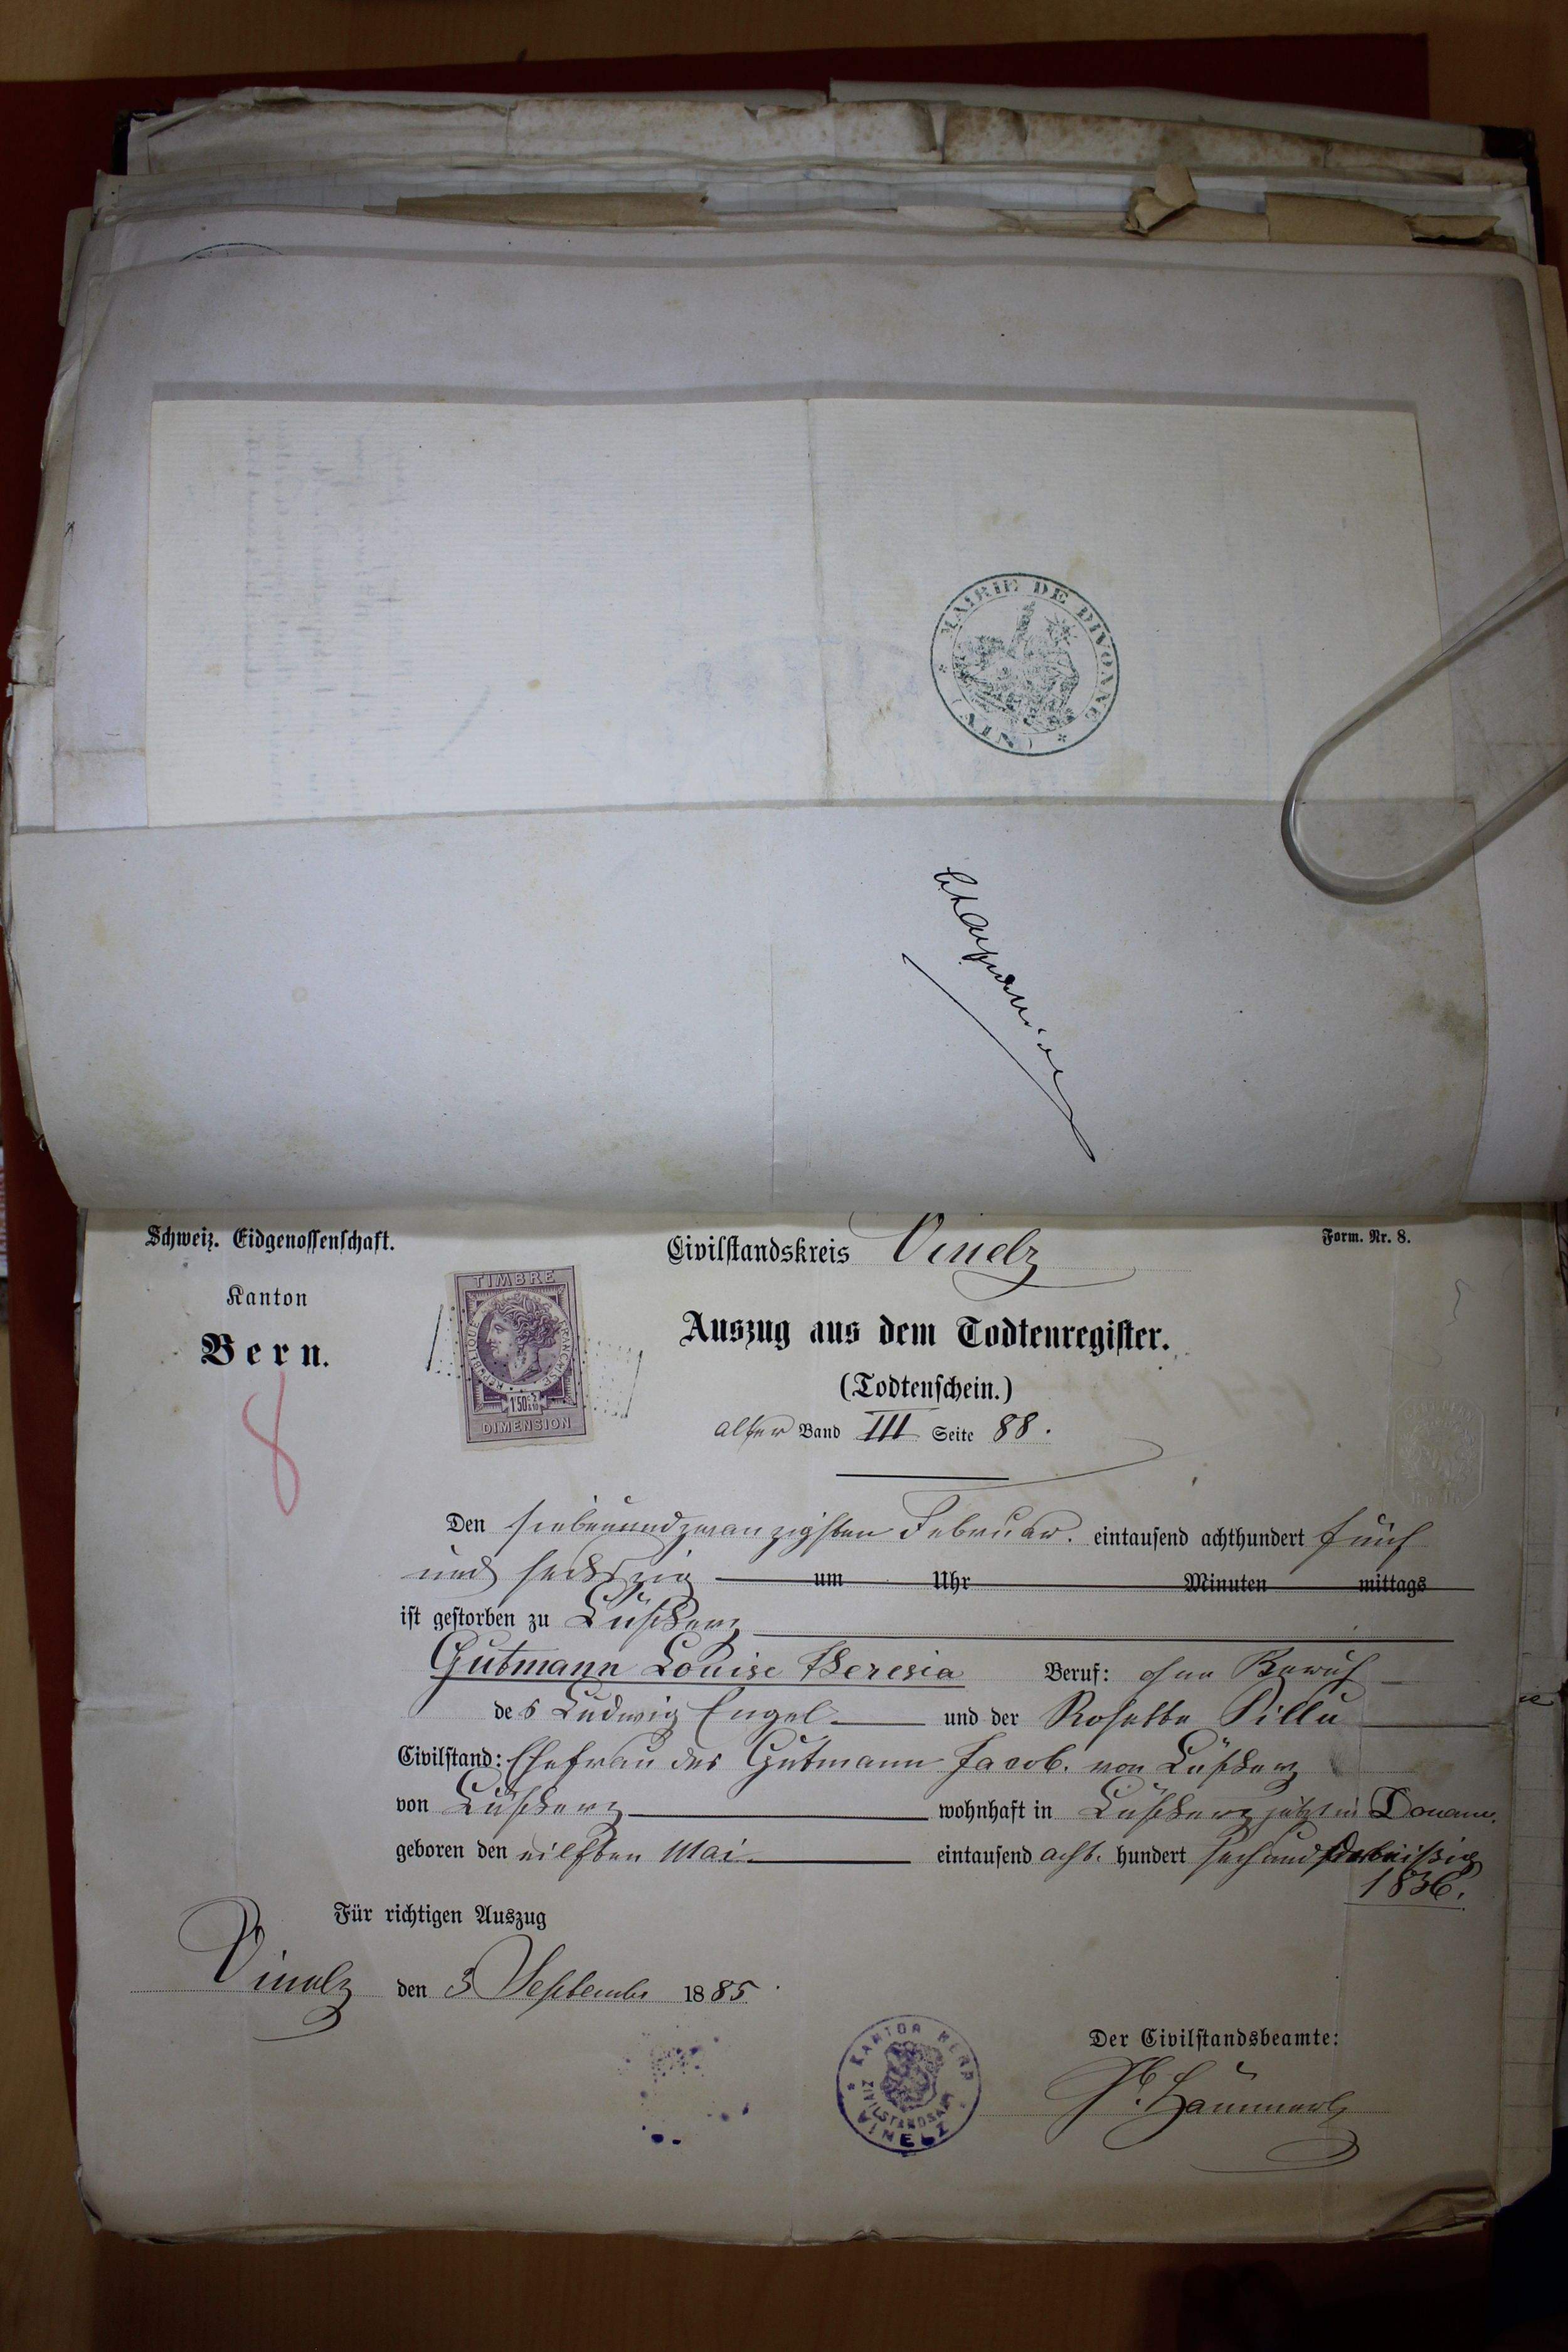 MAIRIE DE DIVONNE (AIN)
Schweiz. Eidgenossenschaft.
Civilstandskreis Vinelz
Form. Nr. 8.
Kanton
Bern.
8
TIMBRE
REPUBLIQUE FRANÇAISE
DIMENSION
Auszug aus dem Todtenregister.
(Todtenschein.)
alter Band III Seite 88.
Den siebenundzwanzigsten Februar. eintausend achthundert fünf
und sechszig um Uhr Minuten mittags
ist gestorben zu Lüscherz
Gutmann Louise Theresia Beruf: ohne Beruf
des Ludwig Engel und der Rosette Pillu
Civilstand: Ehefrau des Gutmann Jacob. von Lüscherz
von Lüscherz wohnhaft in Lüscherz jetzt in Douanne.
geboren den eilften Mai eintausend acht. hundert sechsunddreissig
1836.
Für richtigen Auszug
Vinelz den 3 September 1885
Der Civilstandsbeamte:
KANTON BERN
CIVILSTANDSAMT
VINELZ